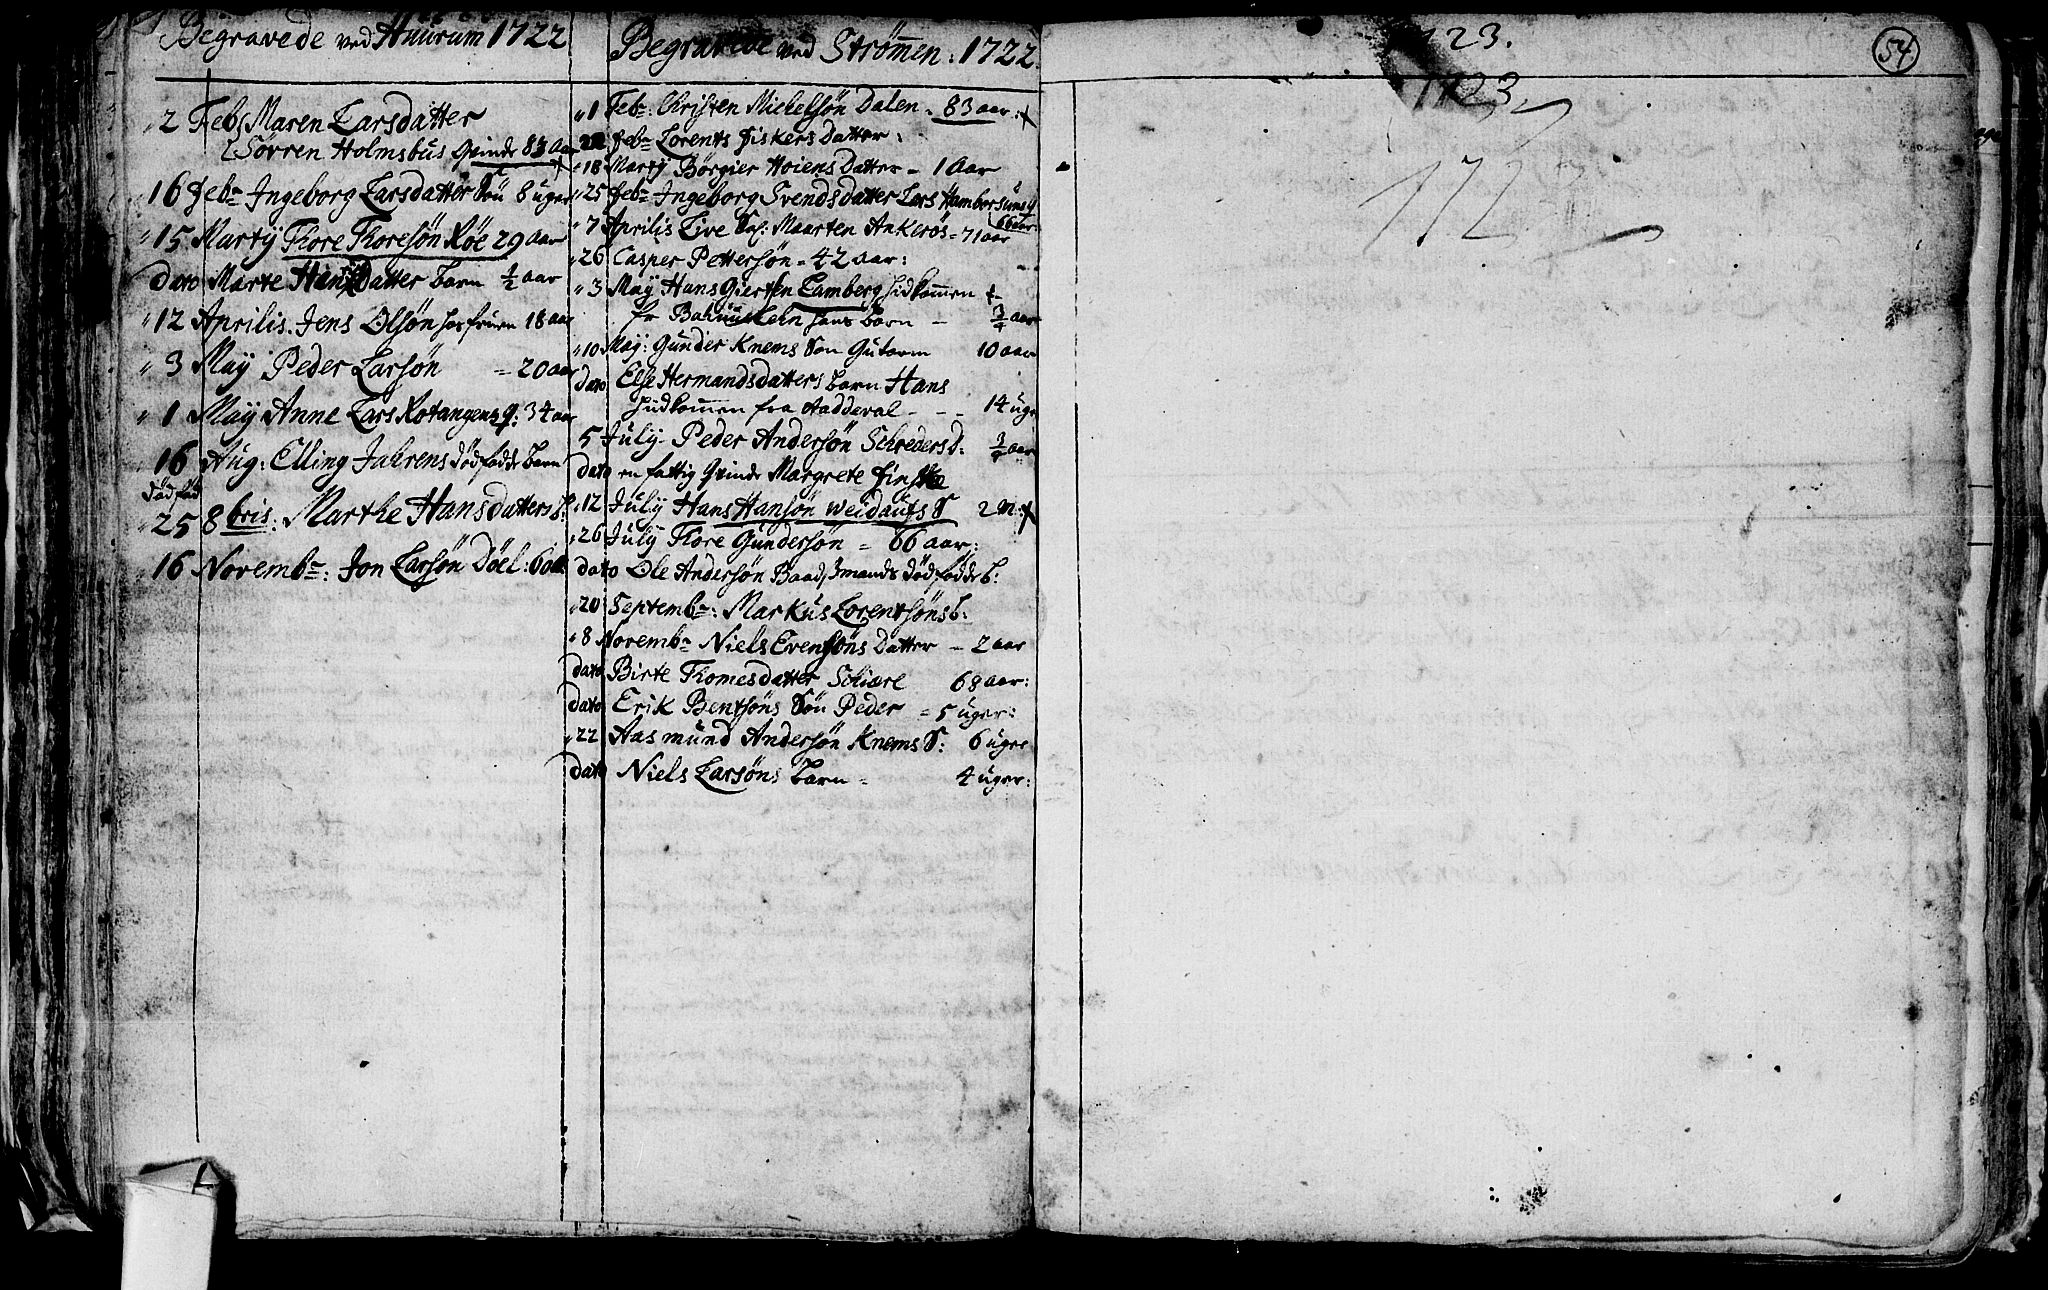 Begravede ved Huurum 1722
2 Feb: Maren Larsdatter
Sövren Holmsbus Qvinde 83 Aar
16 Febr Ingeborg Larsdatter Sön 8 uger
15 Martÿ Thore Thoresön Röe 29 aar
dato Marte Hansdatter barn ½ aar
12 Aprilis. Jens Olsön hos fruen 18 aar
3 Maÿ Peder Larsön = 20 aar
1 Maÿ Anne Lars Rotangens q: 34 aar
16 Aug: Elling Jahrens dödfödde barn
dödfød
25 8bris: Marthe Hansdatters b:
16 Novembr: Jon Larsön Döel: 60 a
Begravede ved Strömen: 1722
1 Febr: Christen Michelsön Dalen - 83 aar:
22 Febr Lorents Fiskers Datter:
18 Martÿ Börgier Hoiens Datter - 1 Aar
25 Febr Ingeborg Svendsdatter Lars Hambersuns q
66 aar:
7 Aprilis Live Sal: Maarten Ankerös = 71 aar
26 Casper Pettersön - 42 aar:
3 Maÿ Hans Gierten Lamberg hidkommen
fr Bahuuslehn hans barn - ¾ aar
10 Maÿ: Gunder Knems Sön Gutorm 10 aar
dato Else Hermandsdatters barn Hans
hidkommen fra Aadderal - - - 14 uge
5 Julÿ Peder Andersön Schreders b: ¾ aar
dato en fattig Qvinde Margrete Finske
12 Julÿ Hans Hansön Weidaufs S 2 M:
26 Julÿ Thore Gundersön = 66 aar:
dato Ole Andersön Baadsmands dödfödde b:
20 Septembr: Markus Lorentsöns b:
8 Novembr Niels Evensöns Datter - 2 aar
dato Birte Thomesdatter Schiære 68 aar:
dato Erik Bentsöns Sön Peder = 5 uger:
22 Aasmund Andersön Knems S: 6 uger
dato Niels Larsöns barn = 4 uger:
1723.
1723
172
54